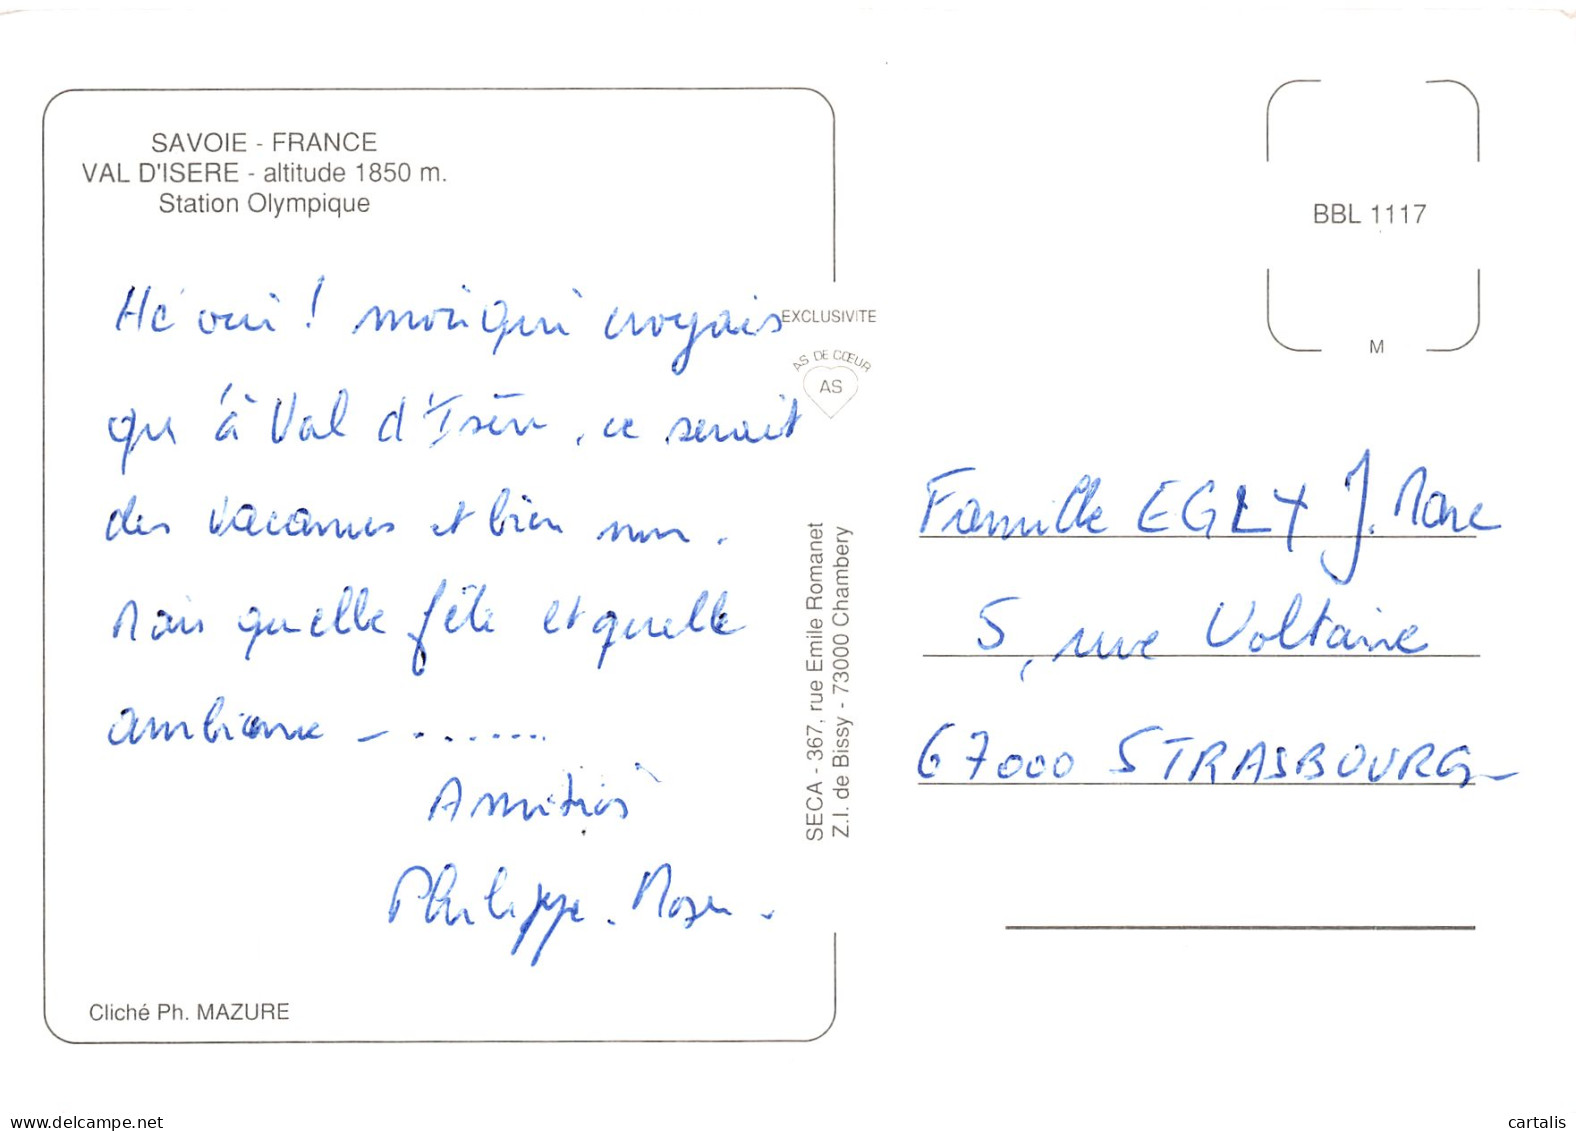 SAVOIE - FRANCE
VAL D'ISERE - altitude 1850 m.
Station Olympique
Hé oui ! moi qui croyais
que à Val d'Isère, ce serait
des vacances et bien non.
Mais quelle fête et quelle
ambiance - .......
Amitiés
Philippe.
Cliché Ph. MAZURE
EXCLUSIVITE
AS DE CŒUR
AS
SECA - 367, rue Emile Romanet
Z.I. de Bissy - 73000 Chambery
BBL 1117
M
Famille EGLY J. Marc
5, rue Voltaire
67000 STRASBOURG
www.delcampe.net
cartalis